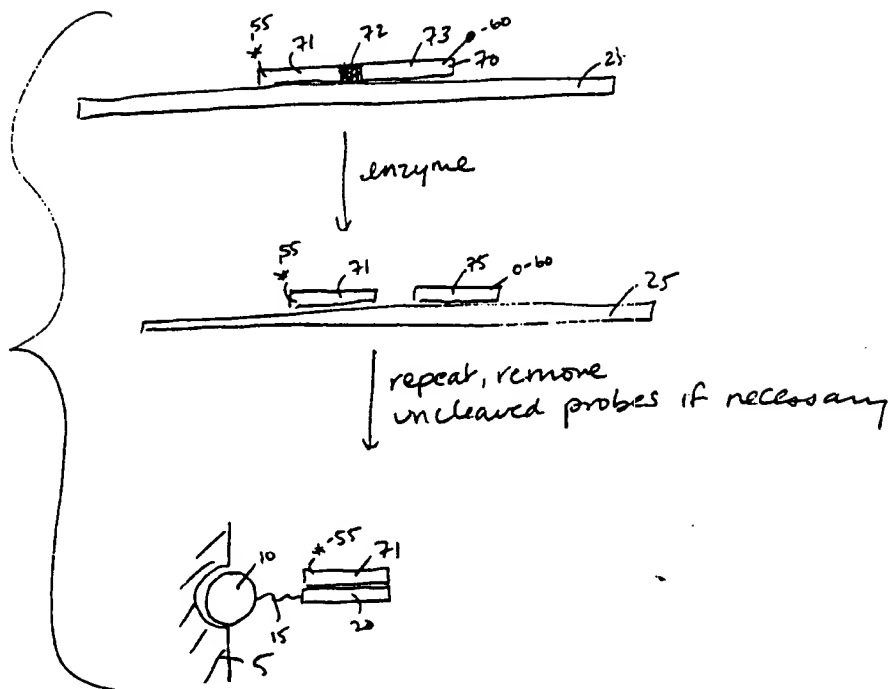 *55 71 72 73 -60
70 25
enzyme
*55 71 75 -60
25
repeat, remove
uncleaved probes if necessary
10 *-55 71
15 20
5